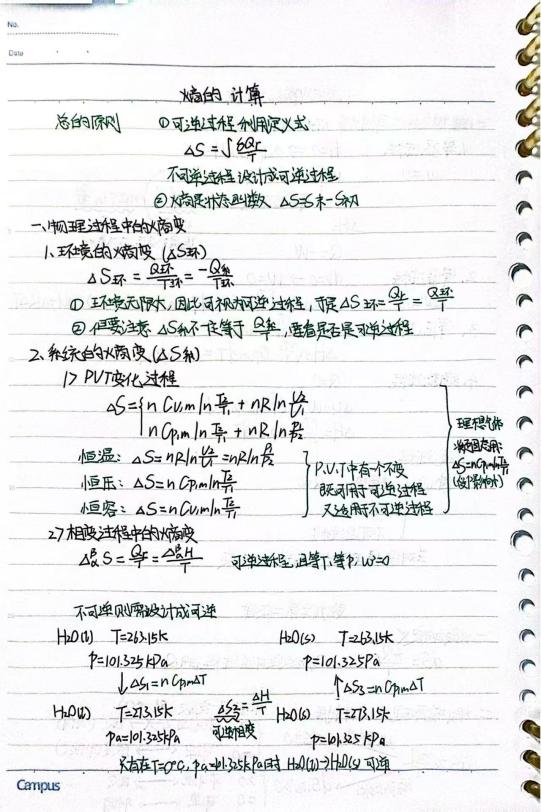 No.
Date
熵的计算
总的原则 ①可逆过程利用定义式
ΔS=∫δQr/T
不可逆过程设计成可逆过程
②熵是状态函数 ΔS=S末-S初
一、物理过程中的熵变
1、环境的熵变(ΔS环)
ΔS环=Q环/T环=-Q系/T环
①环境无限大,因此可视为可逆过程,于是ΔS环=Qr/T=Q环/T
②但要注意ΔS系不一定等于Q系/T,要看是否是可逆过程
2、系统的熵变(ΔS系)
1>PVT变化过程
ΔS={nCv,m ln T2/T1 + nR ln V2/V1
nCp,m ln T2/T1 + nR ln P1/P2
理想气体
凝固态用:
ΔS=nCp,m ln T2/T1
恒温:ΔS=nR ln V2/V1=nR ln P1/P2
恒压:ΔS=nCp,m ln T2/T1
恒容:ΔS=nCv,m ln T2/T1
P.V.T中有个不变
既可用于可逆过程
又适用于不可逆过程
2>相变过程中的熵变
Δ_α^β S=Qr/T=Δ_α^β H/T 可逆过程,且等T,等P,W'=0
不可逆则需设计成可逆
H2O(l) T=263.15K H2O(s) T=263.15K
P=101.325kPa P=101.325Pa
↓ΔS1=nCp,mΔT ↑ΔS3=nCp,mΔT
H2O(l) T=273.15K ΔS2=ΔH/T H2O(s) T=273.15K
Pa=101.325kPa 可逆相变 P=101.325kPa
只有在T=0℃,Pa=101.325kPa时 H2O(l)→H2O(s)可逆
Campus